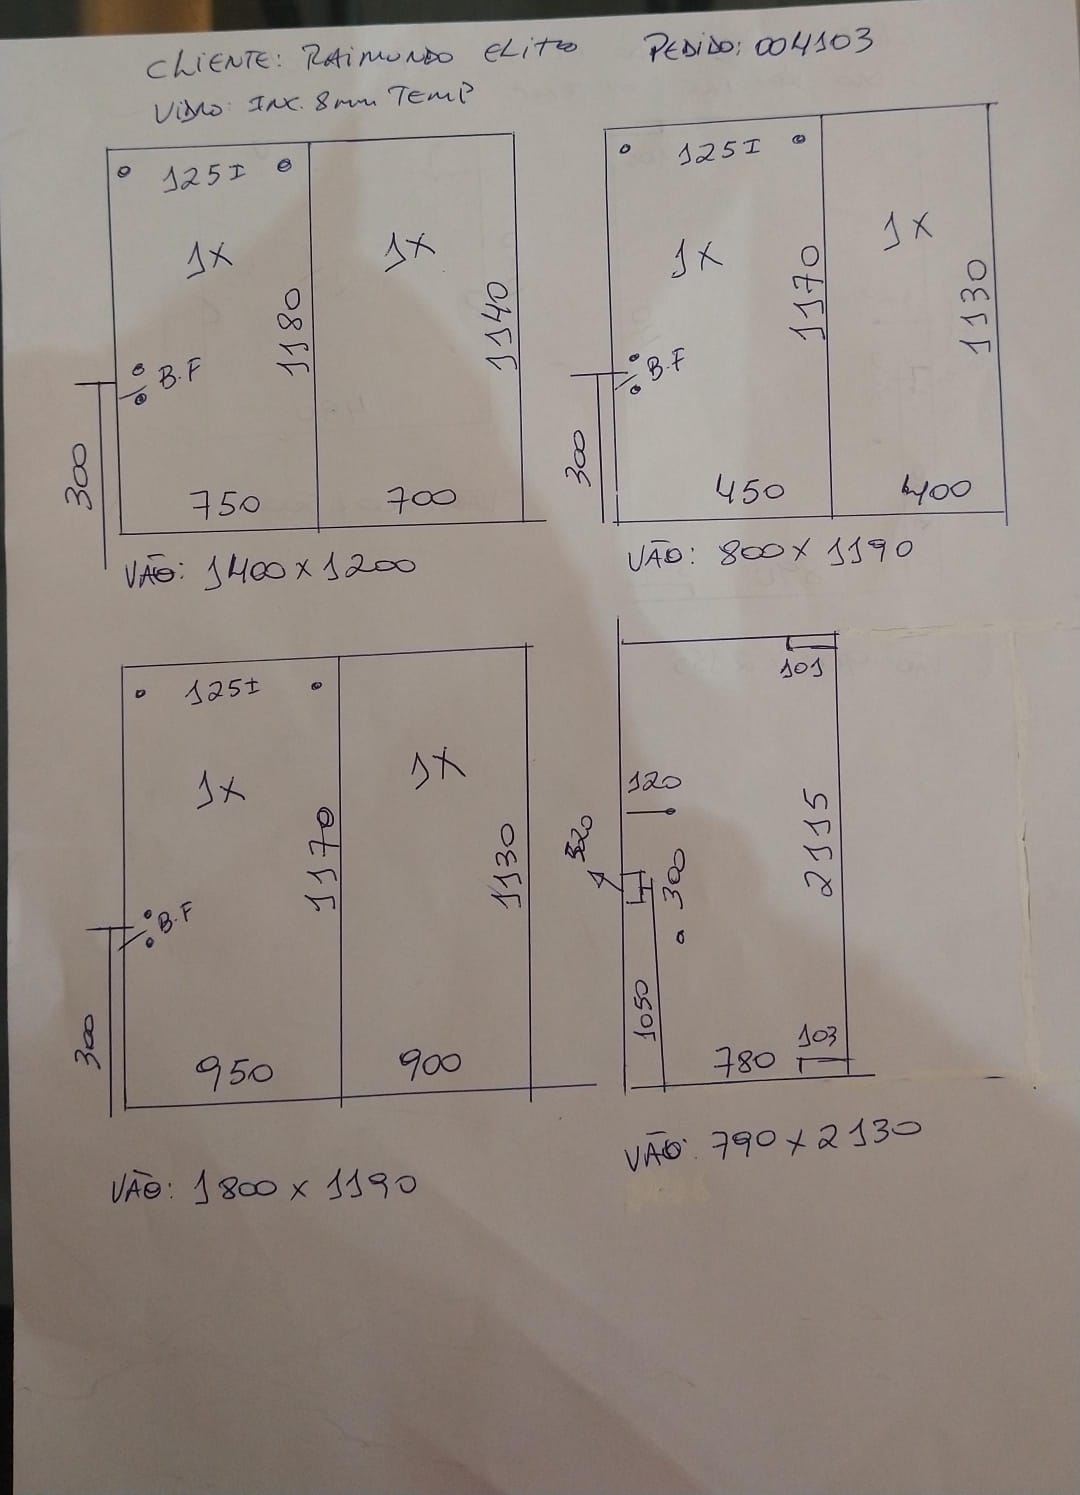 CLIENTE: RAIMUNDO ELITO PEDIDO: 004103
VIDRO: INC. 8mm TEMP
125I
1X
1X
1180
1140
B.F
300
750
700
VÃO: 1400 X 1200
125I
1X
1X
1170
1130
B.F
300
450
400
VÃO: 800 X 1190
125I
1X
1X
1170
1130
B.F
300
950
900
VÃO: 1800 X 1190
101
120
2115
300
1050
103
780
VÃO: 790 X 2130